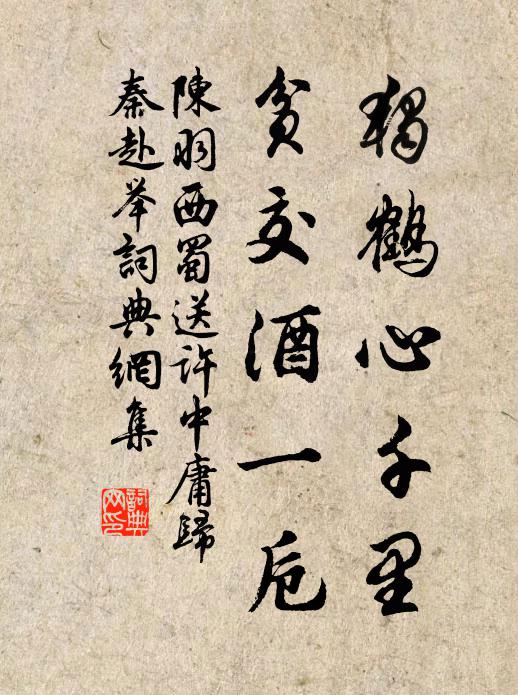 獨鶴心千里
貧交酒一卮
陳羽西蜀送許中庸歸
秦赴举詞典網集
詞典网印